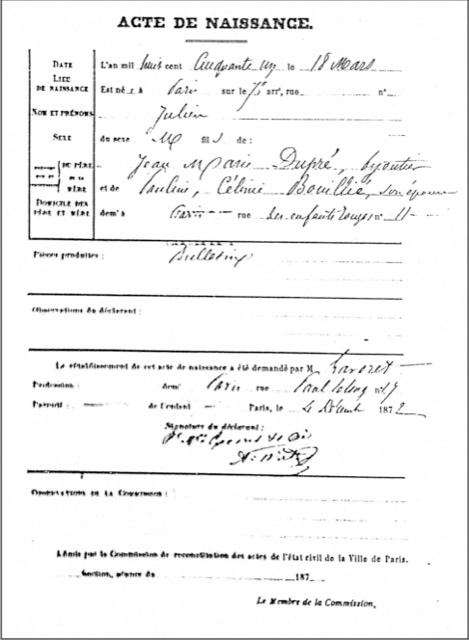 ACTE DE NAISSANCE.
DATE L'an mil huit cent Cinquante un le 18 Mars
LIEU DE NAISSANCE Est né à Paris sur le 7e arrt, rue n°
NOM ET PRÉNOMS Julien
SEXE du sexe M fils de:
DU PÈRE Jean Marie Dupré, bijoutier
DE LA MÈRE et de Pauline, Célinie Bouillié, son épouse
DOMICILE DES PÈRE ET MÈRE demt à Paris rue des enfants rouges n° 11
Pièces produites: Bulletin
Observations du déclarant:
Le rétablissement de cet acte de naissance a été demandé par M
Profession: demt Paris rue Paul Lelong n°
de l'enfant Paris, le 4 1872
Signature du déclarant:
OBSERVATIONS DE LA COMMISSION:
Admis par la Commission de reconstitution des actes de l'état civil de la Ville de Paris.
Section, séance du 187
Le Membre de la Commission,